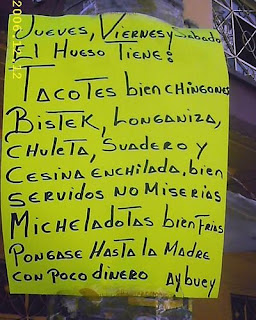 Jueves, Viernes y Sabado
El Hueso Tiene:
Tacotes bien chingones
Bistek, Longaniza,
Chuleta, Suadero y
Cesina enchilada, bien
servidos no miserias
Micheladotas bien Frias
Pongase Hasta la Madre
con poco dinero Ay buey